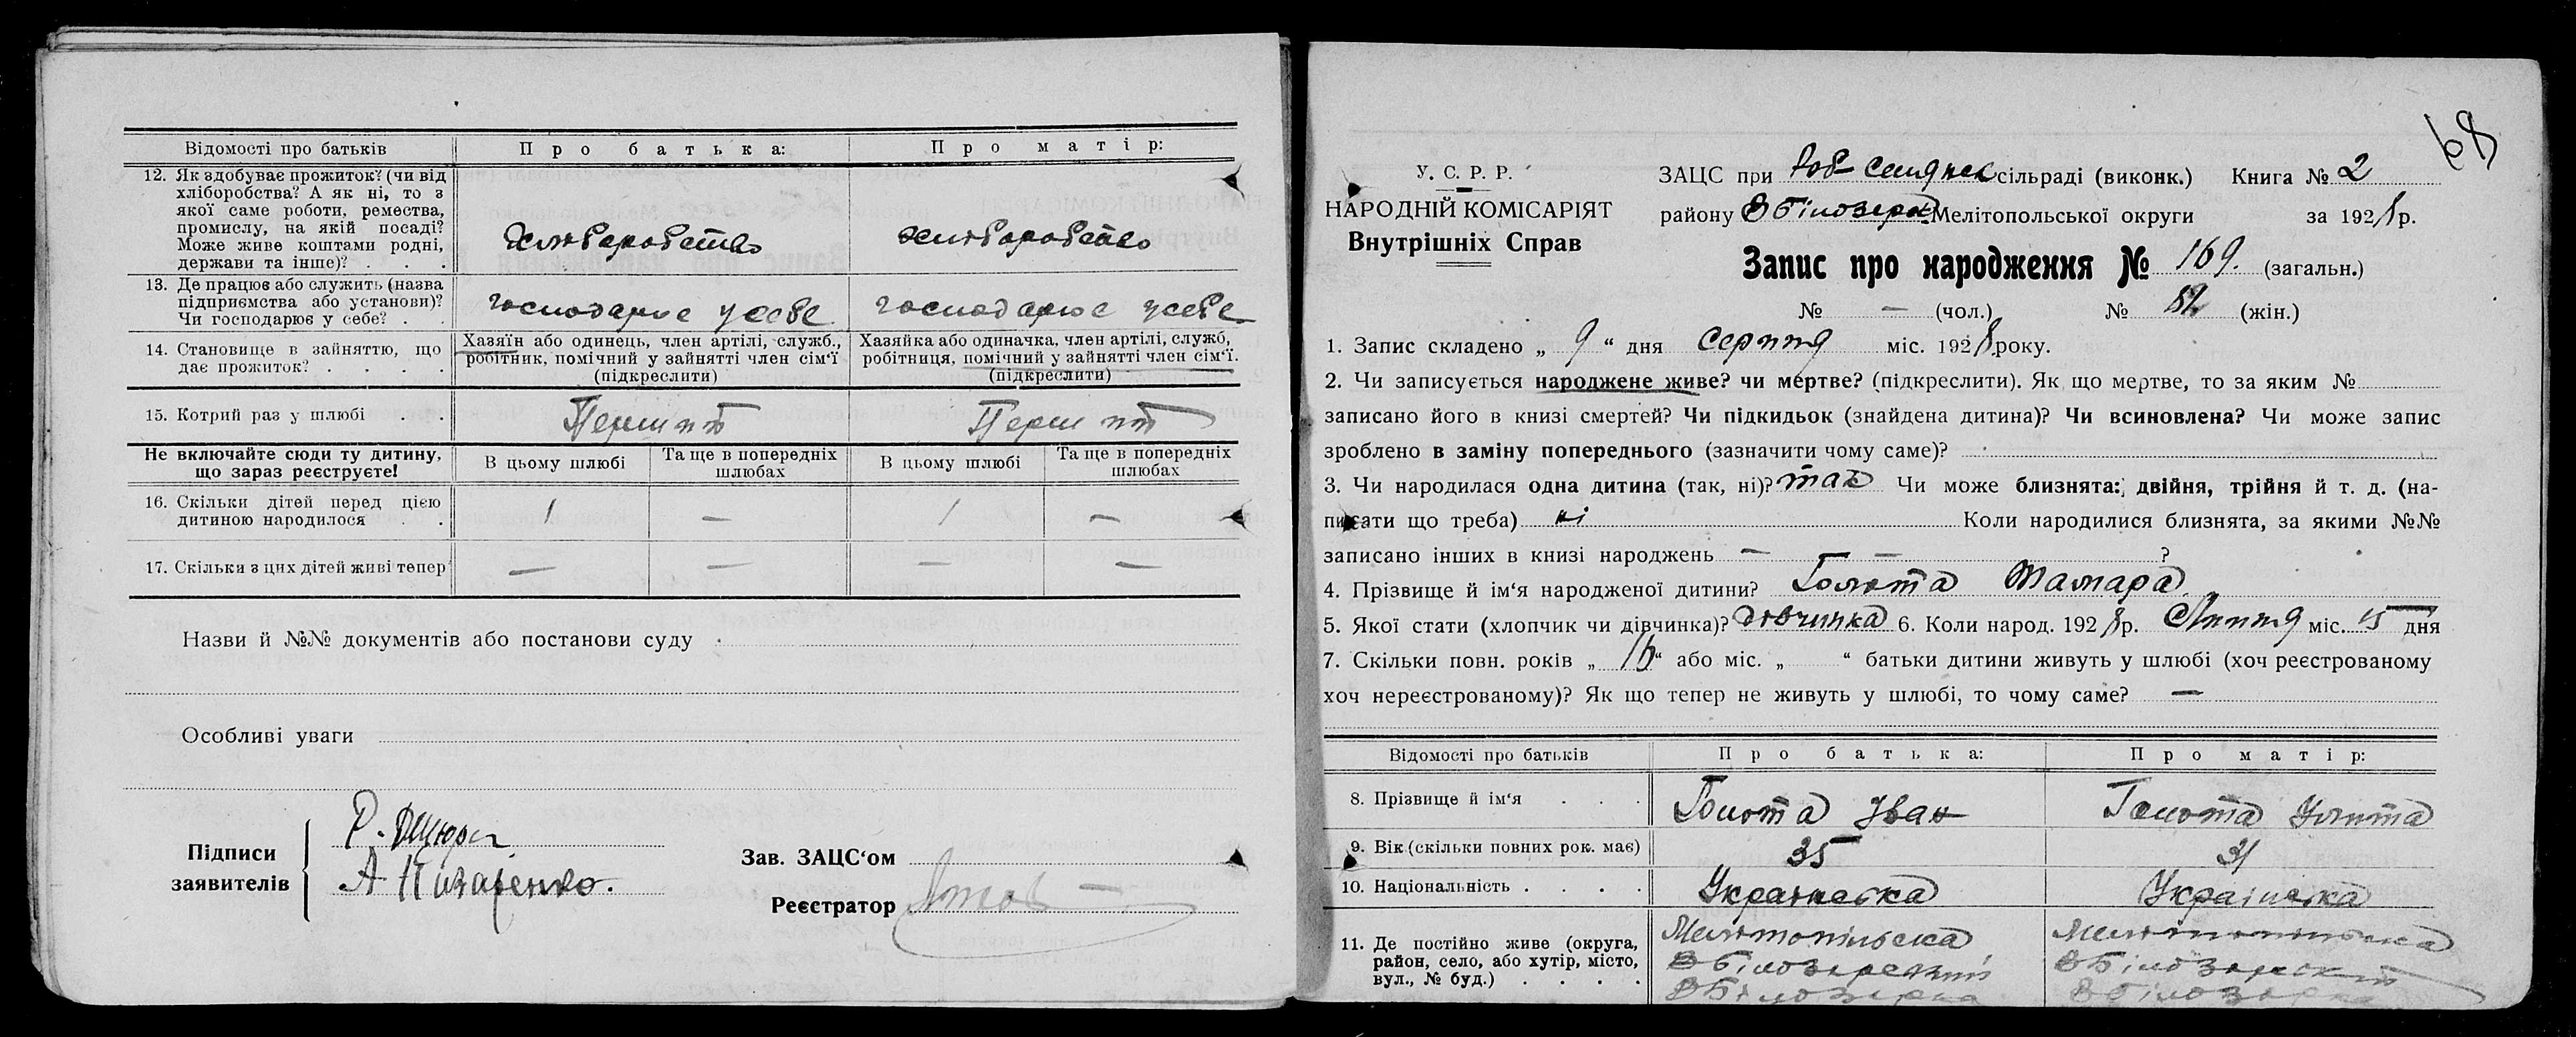 Відомості про батьків
Про батька:
Про матір:
12. Як здобуває прожиток? (чи від
хліборобства? А як ні, то з
якої саме роботи, ремества,
промислу, на якій посаді?
Може живе коштами родні,
держави та інше)? . . .
хліборобство
хліборобство
13. Де працює або служить (назва
підприємства або установи)?
Чи господарює у себе? . .
господарює у себе
господарює у себе
14. Становище в зайняттю, що
дає прожиток? . . . .
Хазяїн або одинець, член артілі, служб.,
робітник, помічний у зайнятті член сім'ї
(підкреслити)
Хазяйка або одиначка, член артілі, служб,
робітниця, помічний у зайнятті член сім'ї.
(підкреслити)
15. Котрий раз у шлюбі . .
Перший
Перший
Не включайте сюди ту дитину,
що зараз реєструєте!
В цьому шлюбі
Та ще в попередніх
шлюбах
В цьому шлюбі
Та ще в попередніх
шлюбах
16. Скільки дітей перед цією
дитиною народилося . .
1 — 1 —
17. Скільки з цих дітей живі тепер
— — — —
Назви й №№ документів або постанови суду
Особливі уваги
Підписи
заявителів
Р.
А
Зав. ЗАЦС'ом
Реєстратор
68
У. С. Р. Р.
НАРОДНІЙ КОМІСАРІЯТ
Внутрішніх Справ
ЗАЦС при сільраді (виконк.) Книга № 2
району В Білозерск Мелітопольської округи за 1928 р.
Запис про народження № 169. (загальн.)
№ — (чол.) № (жін.)
1. Запис складено „ 9 " дня серпня міс. 1928 року.
2. Чи записується народжене живе? чи мертве? (підкреслити). Як що мертве, то за яким №
записано його в книзі смертей? Чи підкидьок (знайдена дитина)? Чи всиновлена? Чи може запис
зроблено в заміну попереднього (зазначити чому саме)?
3. Чи народилася одна дитина (так, ні)? так Чи може близнята: двійня, трійня й т. д. (на-
писати що треба) ні Коли народилися близнята, за якими №№
записано інших в книзі народжень — — ?
4. Прізвище й ім'я народженої дитини? Голота Тамара
5. Якої стати (хлопчик чи дівчинка)? дівчинка 6. Коли народ. 1928 р. Липня міс. 15 дня
7. Скільки повн. років „ 16 " або міс. „ " батьки дитини живуть у шлюбі (хоч реєстрованому
хоч нереєстрованому)? Як що тепер не живуть у шлюбі, то чому саме? —
Відомості про батьків
Про батька:
Про матір:
8. Прізвище й ім'я . . .
Голота Іван
Голота Улита
9. Вік (скільки повних рок. має)
35
31
10. Національність . . . .
Українська
Українська
11. Де постійно живе (округа,
район, село, або хутір, місто,
вул., № буд.) . . . .
Мелітопільська
В Білозерський
В Білозерка
Мелітопільська
В Білозерский
В Білозерка